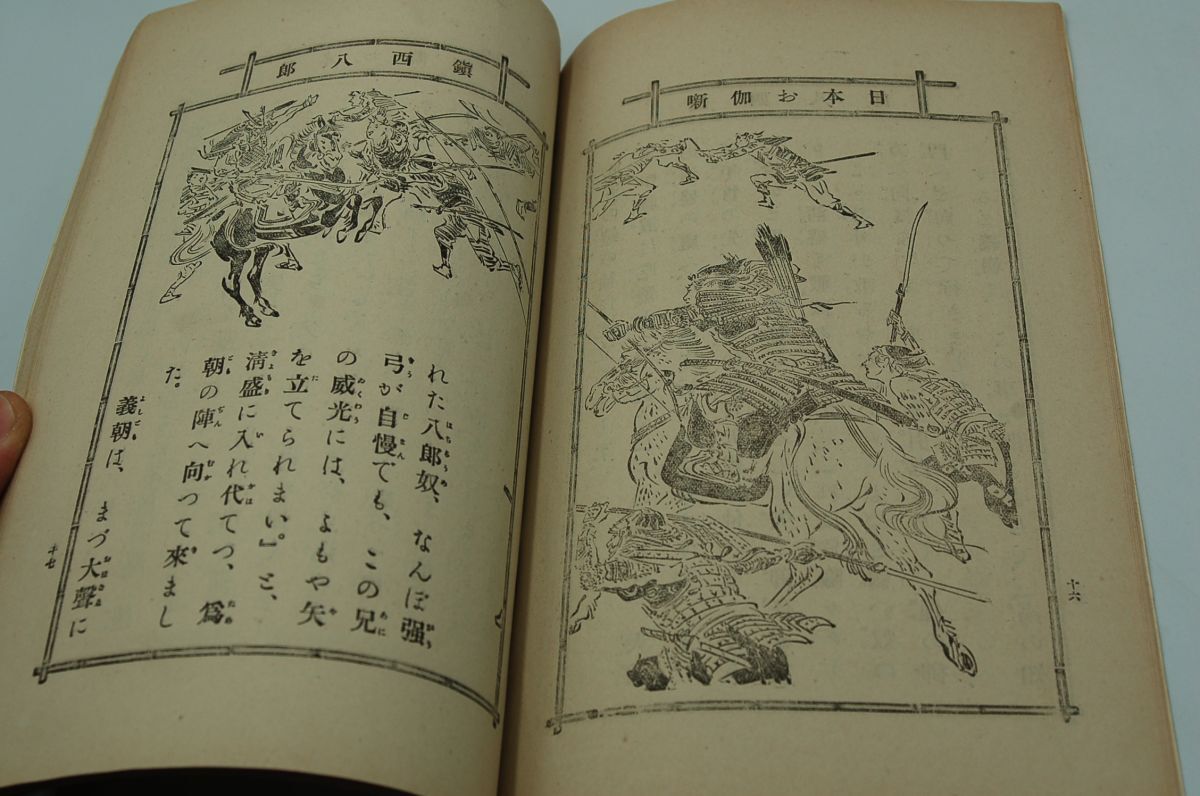 日本お伽噺
十六
鎮西八郎
れた八郎奴、なんぼ强
弓が自慢でも、この兄
の威光には、よもや矢
を立てられまい』と、
淸盛に入れ代てつ、爲
朝の陣へ向つて來まし
た。
義朝は、まづ大聲に
十七